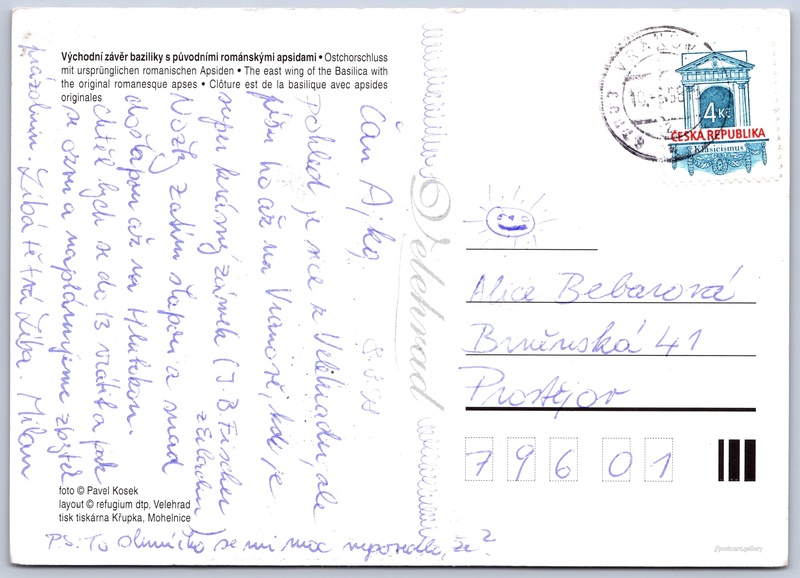 Východní závěr baziliky s původními románskými apsidami • Ostchorschluss
mit ursprünglichen romanischen Apsiden • The east wing of the Basilica with
the original romanesque apses • Clôture est de la basilique avec apsides
originales
Čau Ajko,
pohled je sice z Velehradu, ale
píšu ho až na Vranově, kde je
super krásný zámek (J. B. Fischer
z Erlachu)
Nožky zatím šlapou a snad
došlapou až na
chtěl bych se do 13 vrátit a pak
se ozvu a naplánujeme zbytek
prázdnin. Líbá tě tvá Milan
PS: To sluníčko se mi moc nepovedlo, že?
foto © Pavel Kosek
layout © refugium dtp, Velehrad
tisk tiskárna Křupka, Mohelnice
Velehrad
VRANOV
4 Kč
ČESKÁ REPUBLIKA
Klasicismus
Alice Bebarová
Brněnská 41
Prostějov
79601
//postcard.gallery